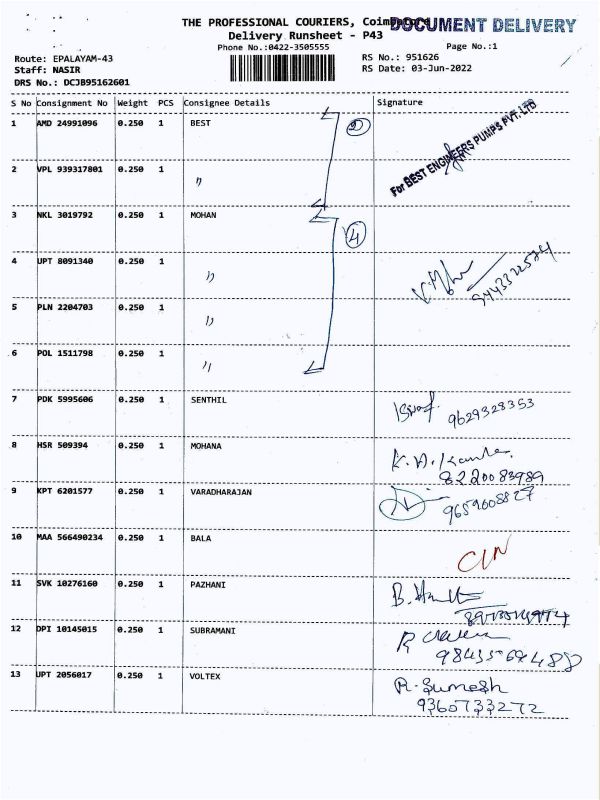 THE PROFESSIONAL COURIERS, Coimbatore
DOCUMENT DELIVERY
Delivery Runsheet - P43
Phone No.:0422-3505555
Page No.:1
Route: EPALAYAM-43
RS No.: 951626
Staff: NASIR
RS Date: 03-Jun-2022
DRS No.: DCJB95162601
S No Consignment No Weight PCS Consignee Details Signature
1 AMD 24991096 0.250 1 BEST
2
For BEST ENGINEERS PUMPS PVT. LTD
2 VPL 939317801 0.250 1 "
3 NKL 3019792 0.250 1 MOHAN
4
4 UPT 8091340 0.250 1 "
5 PLN 2204703 0.250 1 "
6 POL 1511798 0.250 1 "
7 PDK 5995606 0.250 1 SENTHIL
9629328353
8 HSR 509394 0.250 1 MOHANA
8220083989
9 KPT 6201577 0.250 1 VARADHARAJAN
9659008827
10 MAA 566490234 0.250 1 BALA
11 SVK 10276160 0.250 1 PAZHANI
12 DPI 10145015 0.250 1 SUBRAMANI
13 UPT 2056017 0.250 1 VOLTEX
R. Sumesh
9360733272